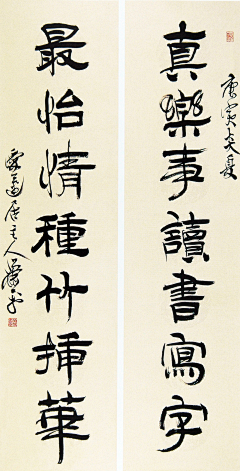 真樂事讀書寫字
最怡情種竹插華
庚寅之夏